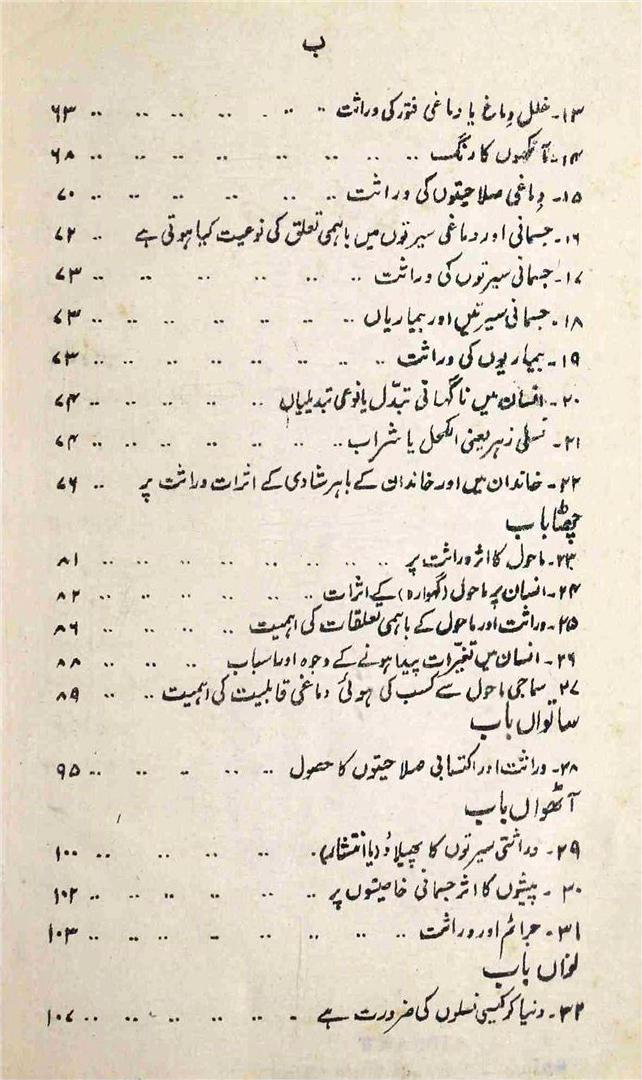 ب
۱۳۔ خللِ دماغ یا دماغی فتور کی وراثت .. .. .. .. .. .. ۶۳
۱۴۔ آنکھوں کا رنگ .. .. .. .. .. .. .. ۶۸
۱۵۔ دماغی صلاحیتوں کی وراثت .. .. .. .. .. .. ۷۰
۱۶۔ جسمانی اور دماغی سیرتوں میں باہمی تعلق کی نوعیت کیا ہوتی ہے .. ۷۲
۱۷۔ جسمانی سیرتوں کی وراثت .. .. .. .. .. .. ۷۳
۱۸۔ جسمانی سیرتیں اور بیماریاں .. .. .. .. .. .. ۷۳
۱۹۔ بیماریوں کی وراثت .. .. .. .. .. .. .. ۷۳
۲۰۔ انسان میں ناگہانی تبدّل یا نوعی تبدیلیاں .. .. .. .. ۷۴
۲۱۔ نسلی زہر یعنی الکحل یا شراب .. .. .. .. .. .. .. ۷۴
۲۲۔ خاندان میں اور خاندان کے باہر شادی کے اثرات وراثت پر .. ۷۶
چھٹا باب
۲۳۔ ماحول کا اثر وراثت پر .. .. .. .. .. .. .. ۸۱
۲۴۔ انسان پر ماحول (گہوارہ) کے اثرات .. .. .. .. .. .. ۸۲
۲۵۔ وراثت اور ماحول کے باہمی تعلقات کی اہمیت .. .. .. .. ۸۶
۲۶۔ انسان میں تغیّرات پیدا ہونے کے وجوہ اور اسباب .. .. .. ۸۸
۲۷۔ سماجی ماحول سے کسب کی ہوئی دماغی قابلیت کی اہمیت .. .. ۸۹
ساتواں باب
۲۸۔ وراثت اور اکتسابی صلاحیتوں کا حصول .. .. .. .. .. ۹۵
آٹھواں باب
۲۹۔ وراثتی سیرتوں کا پھیلاؤ (یا انتشار)۔ .. .. .. .. .. ۱۰۰
۳۰۔ پیشوں کا اثر جسمانی خاصیتوں پر .. .. .. .. .. .. ۱۰۲
۳۱۔ جرائم اور وراثت .. .. .. .. .. .. .. ۱۰۳
نواں باب
۳۲۔ دنیا کو کیسی نسلوں کی ضرورت ہے .. .. .. .. .. .. ۱۰۷